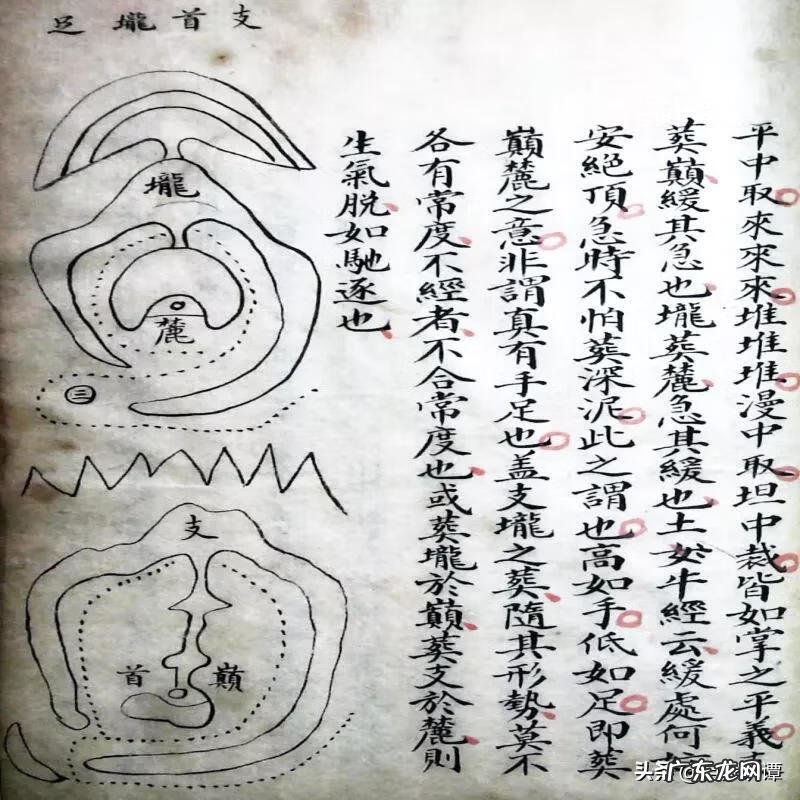 支首壠足
平中取來來來堆堆堆漫中取坦中裁皆如掌之平義
葬巔緩其急也壠葬麓急其緩也土女牛經云緩處何
安絕頂急時不怕葬深泥此之謂也高如手低如足即葬
巔麓之意非謂真有手足也盖支壠之葬隨其形勢莫不
各有常度不經者不合常度也或葬壠於巔葬支於麓則
生氣脫如馳逐也
壠
麓
三
支
巔
首
广东龙网